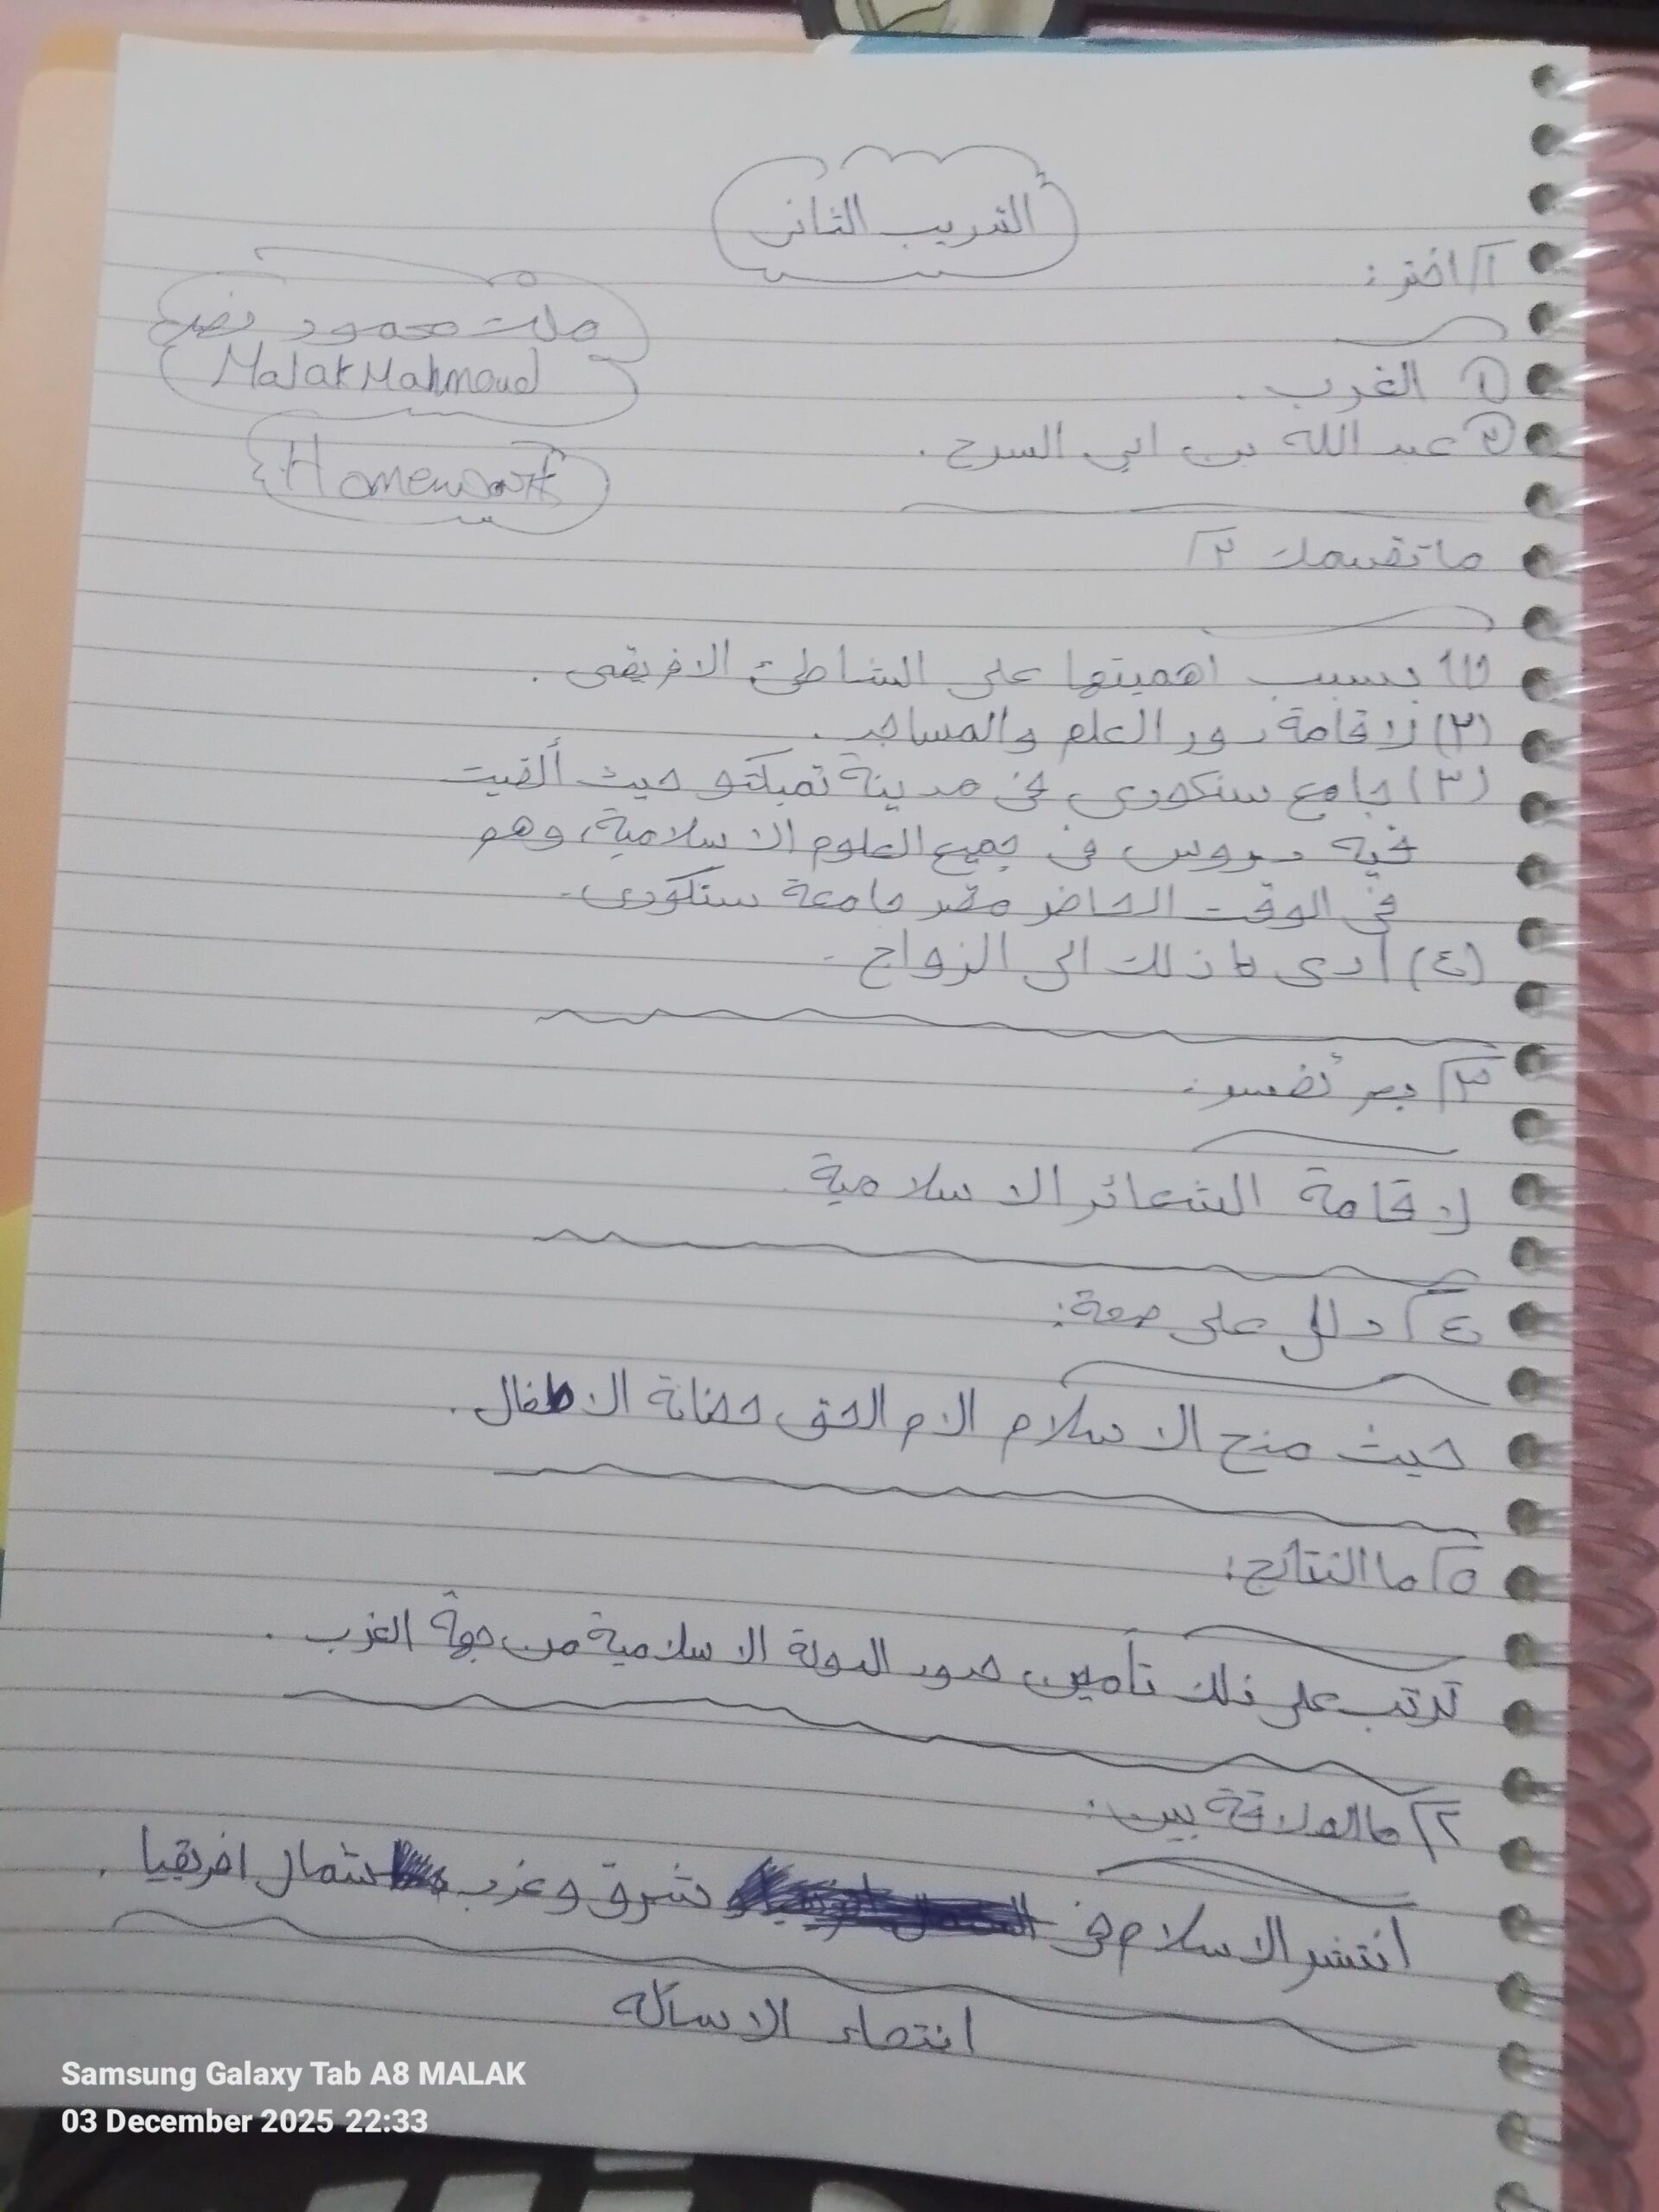 التدريب الثانى
١/ اختر:
ملك محمود نصر
Malak Mahmoud
Homework
① الغرب.
② عبد الله بن ابي السرح.
ما تفسيرك ٢/
(١) بسبب اهميتها على الشاطئ الافريقى.
(٢) لاقامة دور العلم والمساجد.
(٣) جامع سنكورى فى مدينة تمبكتو حيث ألقيت
فيه دروس فى جميع العلوم الاسلامية، وهو
فى الوقت الحاضر مقر جامعة سنكورى.
(٤) أدى ذلك الى الزواج.
٣/ بم تفسر:
لاقامة الشعائر الاسلامية
٤/ دلل على صحة:
حيث منح الاسلام الام الحق حضانة الاطفال.
٥/ ما النتائج:
ترتب على ذلك تأمين حدود الدولة الاسلامية من جهة الغرب.
٦/ ما العلاقة بين:
انتشر الاسلام فى شرق وغرب شمال افريقيا.
انتهاء الاسئله
Samsung Galaxy Tab A8 MALAK
03 December 2025 22:33